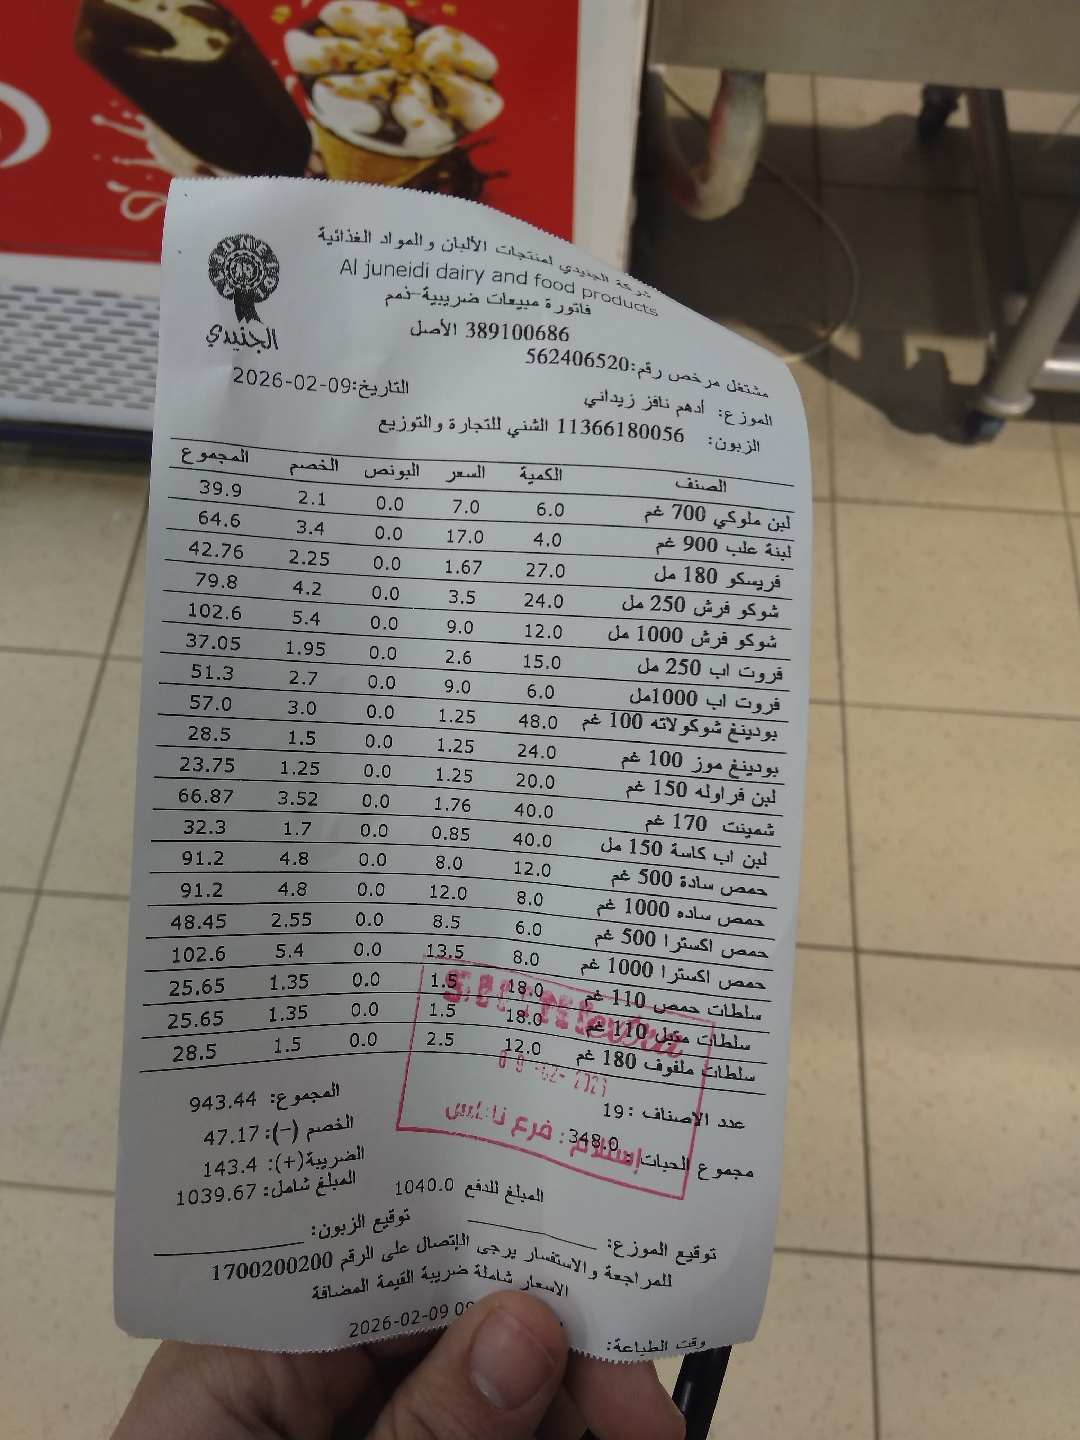 شركة الجنيدي لمنتجات الألبان والمواد الغذائية
Al juneidi dairy and food products
JUNEIDI
الجنيدي
فاتورة مبيعات ضريبية-ذمم
389100686 الأصل
مشتغل مرخص رقم:562406520
الموزع: أدهم نافز زيداني التاريخ:2026-02-09
الزبون: 11366180056 الشني للتجارة والتوزيع
الصنف الكمية السعر البونص الخصم المجموع
لبن ملوكي 700 غم 6.0 7.0 0.0 2.1 39.9
لبنة علب 900 غم 4.0 17.0 0.0 3.4 64.6
فريسكو 180 مل 27.0 1.67 0.0 2.25 42.76
شوكو فرش 250 مل 24.0 3.5 0.0 4.2 79.8
شوكو فرش 1000 مل 12.0 9.0 0.0 5.4 102.6
فروت اب 250 مل 15.0 2.6 0.0 1.95 37.05
فروت اب 1000مل 6.0 9.0 0.0 2.7 51.3
بودينغ شوكولاته 100 غم 48.0 1.25 0.0 3.0 57.0
بودينغ موز 100 غم 24.0 1.25 0.0 1.5 28.5
لبن فراوله 150 غم 20.0 1.25 0.0 1.25 23.75
شمينت 170 غم 40.0 1.76 0.0 3.52 66.87
لبن اب كاسة 150 مل 40.0 0.85 0.0 1.7 32.3
حمص سادة 500 غم 12.0 8.0 0.0 4.8 91.2
حمص ساده 1000 غم 8.0 12.0 0.0 4.8 91.2
حمص اكسترا 500 غم 6.0 8.5 0.0 2.55 48.45
حمص اكسترا 1000 غم 8.0 13.5 0.0 5.4 102.6
سلطات حمص 110 غم 18.0 1.5 0.0 1.35 25.65
سلطات متبل 110 غم 18.0 1.5 0.0 1.35 25.65
سلطات ملفوف 180 غم 12.0 2.5 0.0 1.5 28.5
عدد الاصناف :19 المجموع: 943.44
مجموع الحبات : 348.0 الخصم (-): 47.17
الضريبة(+): 143.4
المبلغ شامل: 1039.67
المبلغ للدفع 1040.0
إستلام : فرع نابلس
توقيع الموزع: توقيع الزبون:
للمراجعة والاستفسار يرجى الإتصال على الرقم 1700200200
الاسعار شاملة ضريبة القيمة المضافة
وقت الطباعة: 2026-02-09